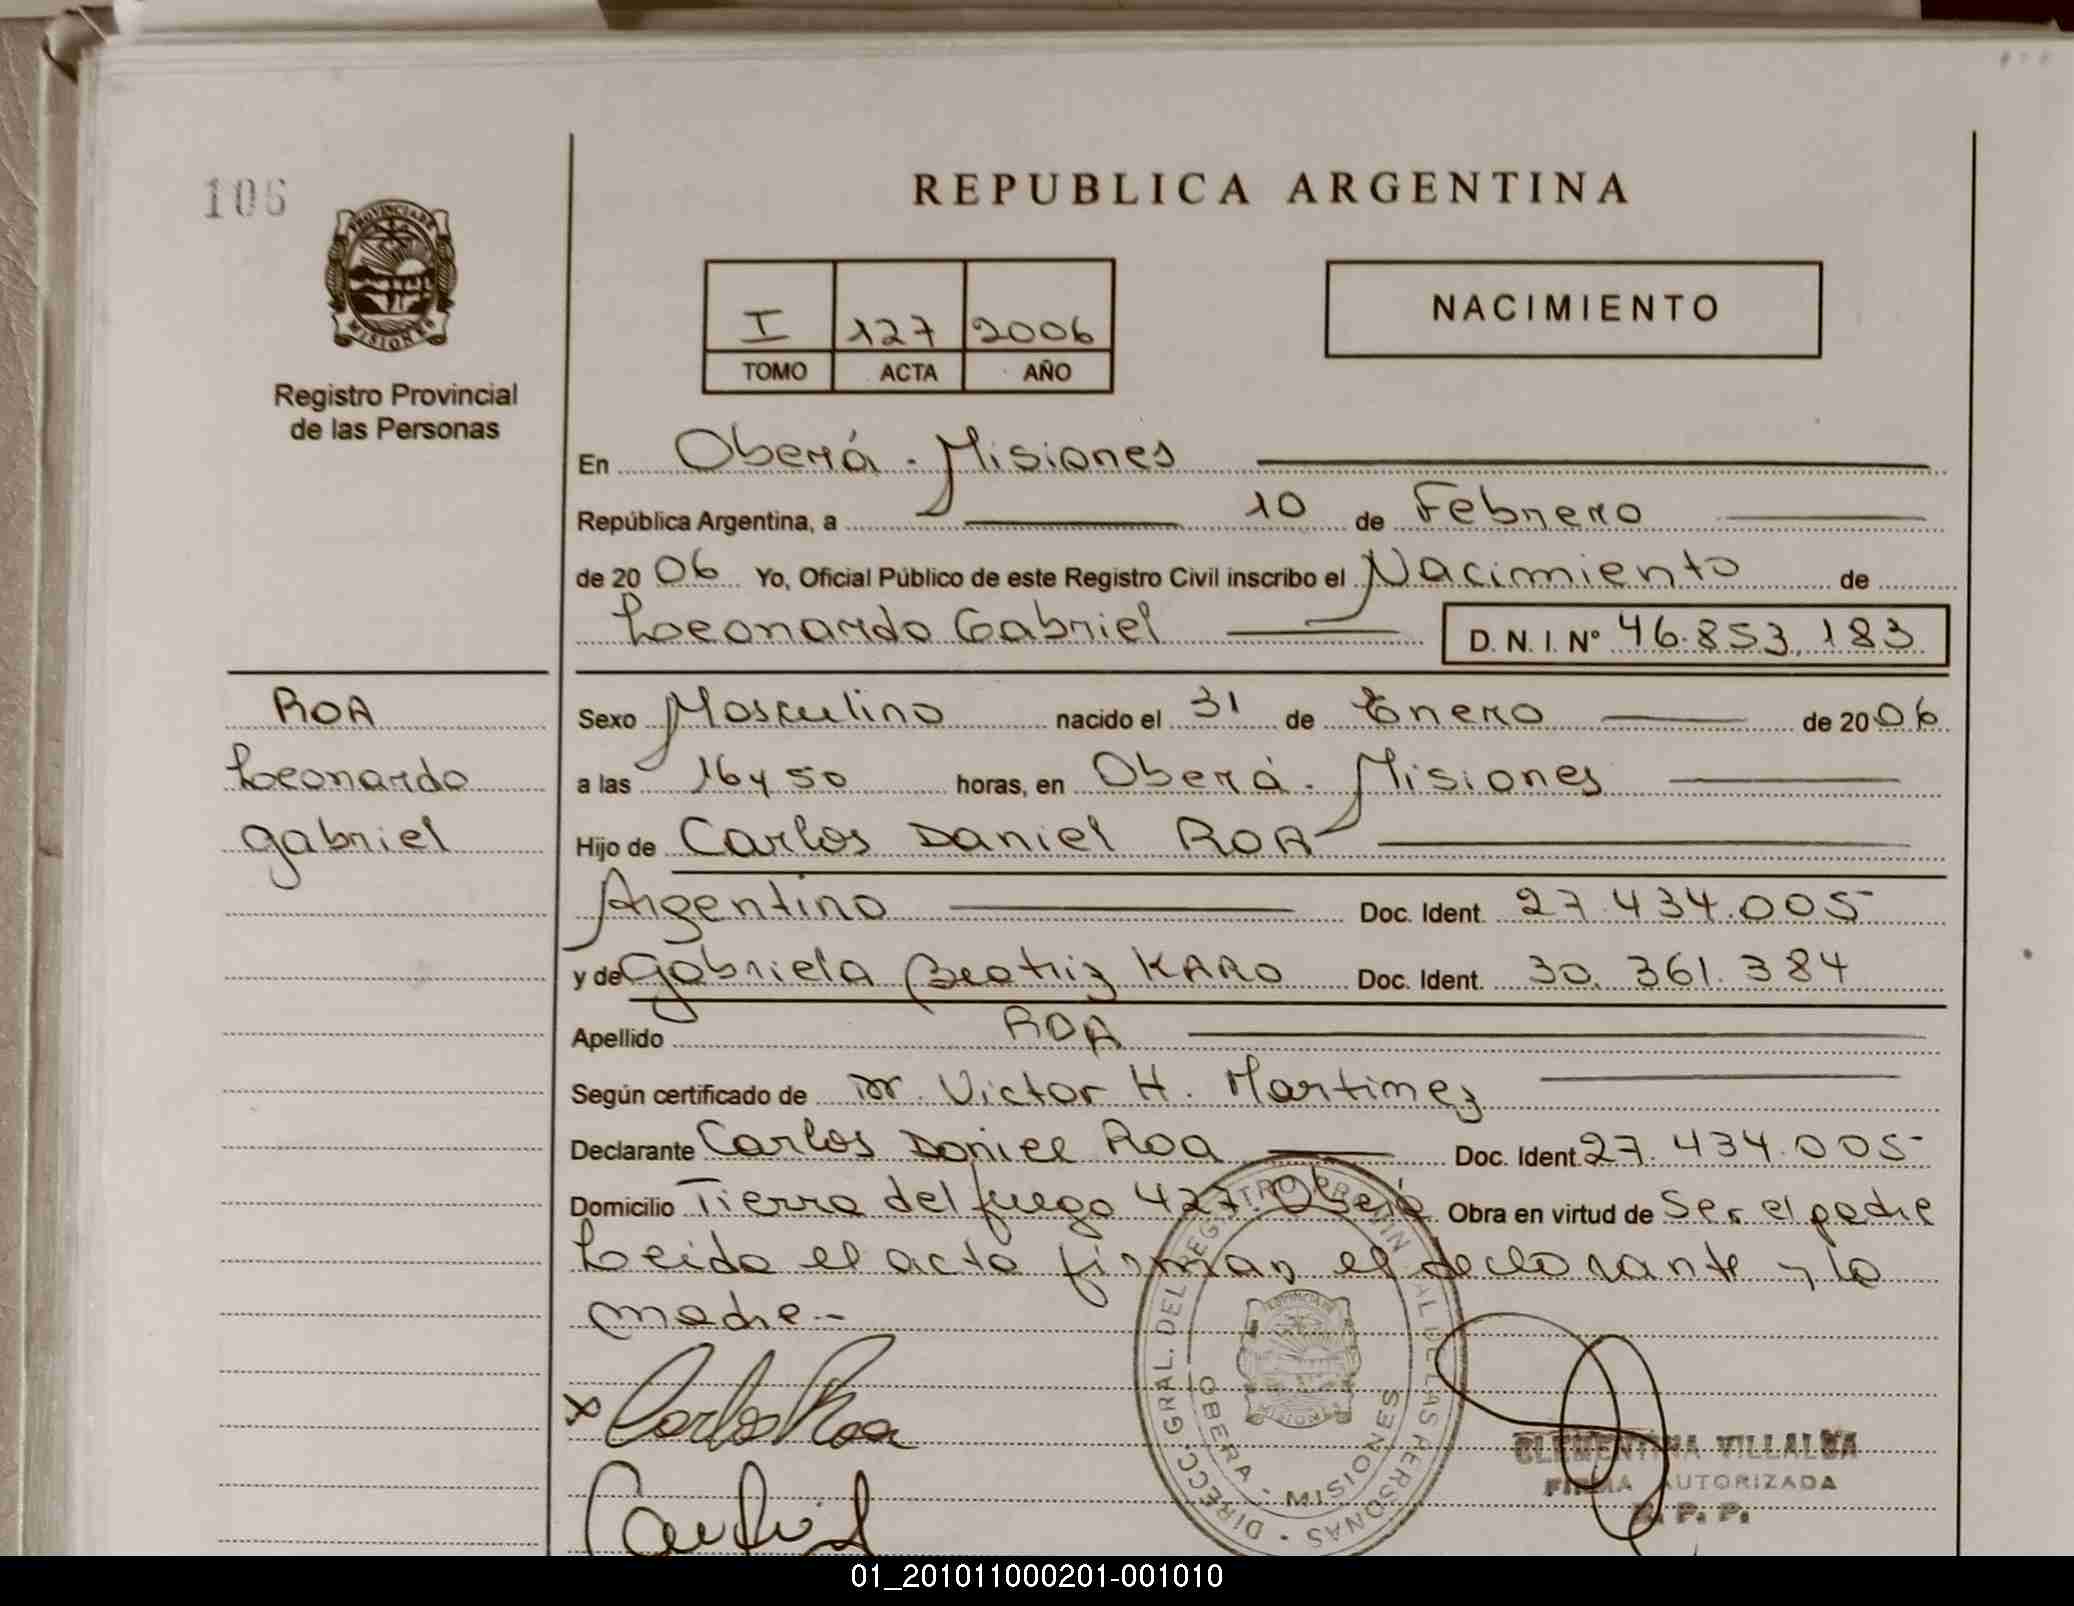 106
PROVINCIA DE
MISIONES
Registro Provincial
de las Personas
REPUBLICA ARGENTINA
I 127 2006
TOMO ACTA AÑO
NACIMIENTO
En Oberá - Misiones
República Argentina, a 10 de Febrero
de 2006 Yo, Oficial Público de este Registro Civil inscribo el Nacimiento de
Leonardo Gabriel D. N. I. Nº 46.853.183
ROA
Leonardo
gabriel
Sexo Masculino nacido el 31 de Enero de 2006
a las 16 y 50 horas, en Oberá - Misiones
Hijo de Carlos Daniel ROA
Argentino Doc. Ident. 27.434.005
y de Gabriela Beatriz KARO Doc. Ident. 30.361.384
Apellido ROA
Según certificado de Dr. Victor H. Martinez
Declarante Carlos Daniel Roa Doc. Ident. 27.434.005
Domicilio Tierra del fuego 427 Oberá Obra en virtud de Ser el padre
Leida el acta firman el declarante y la
madre.-
x Carlos Roa
DIRECC. GRAL. DEL REGISTRO PROVINCIAL DE LAS PERSONAS
OBERA - MISIONES
PROVINCIA DE
MISIONES
CLEMENTINA VILLALBA
FIRMA AUTORIZADA
R. P. P.
01_201011000201-001010